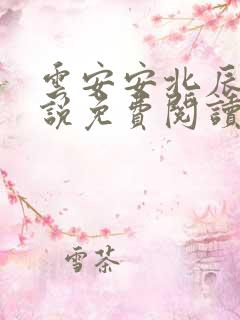 雲安安北辰
說免費閱讀
雪茶